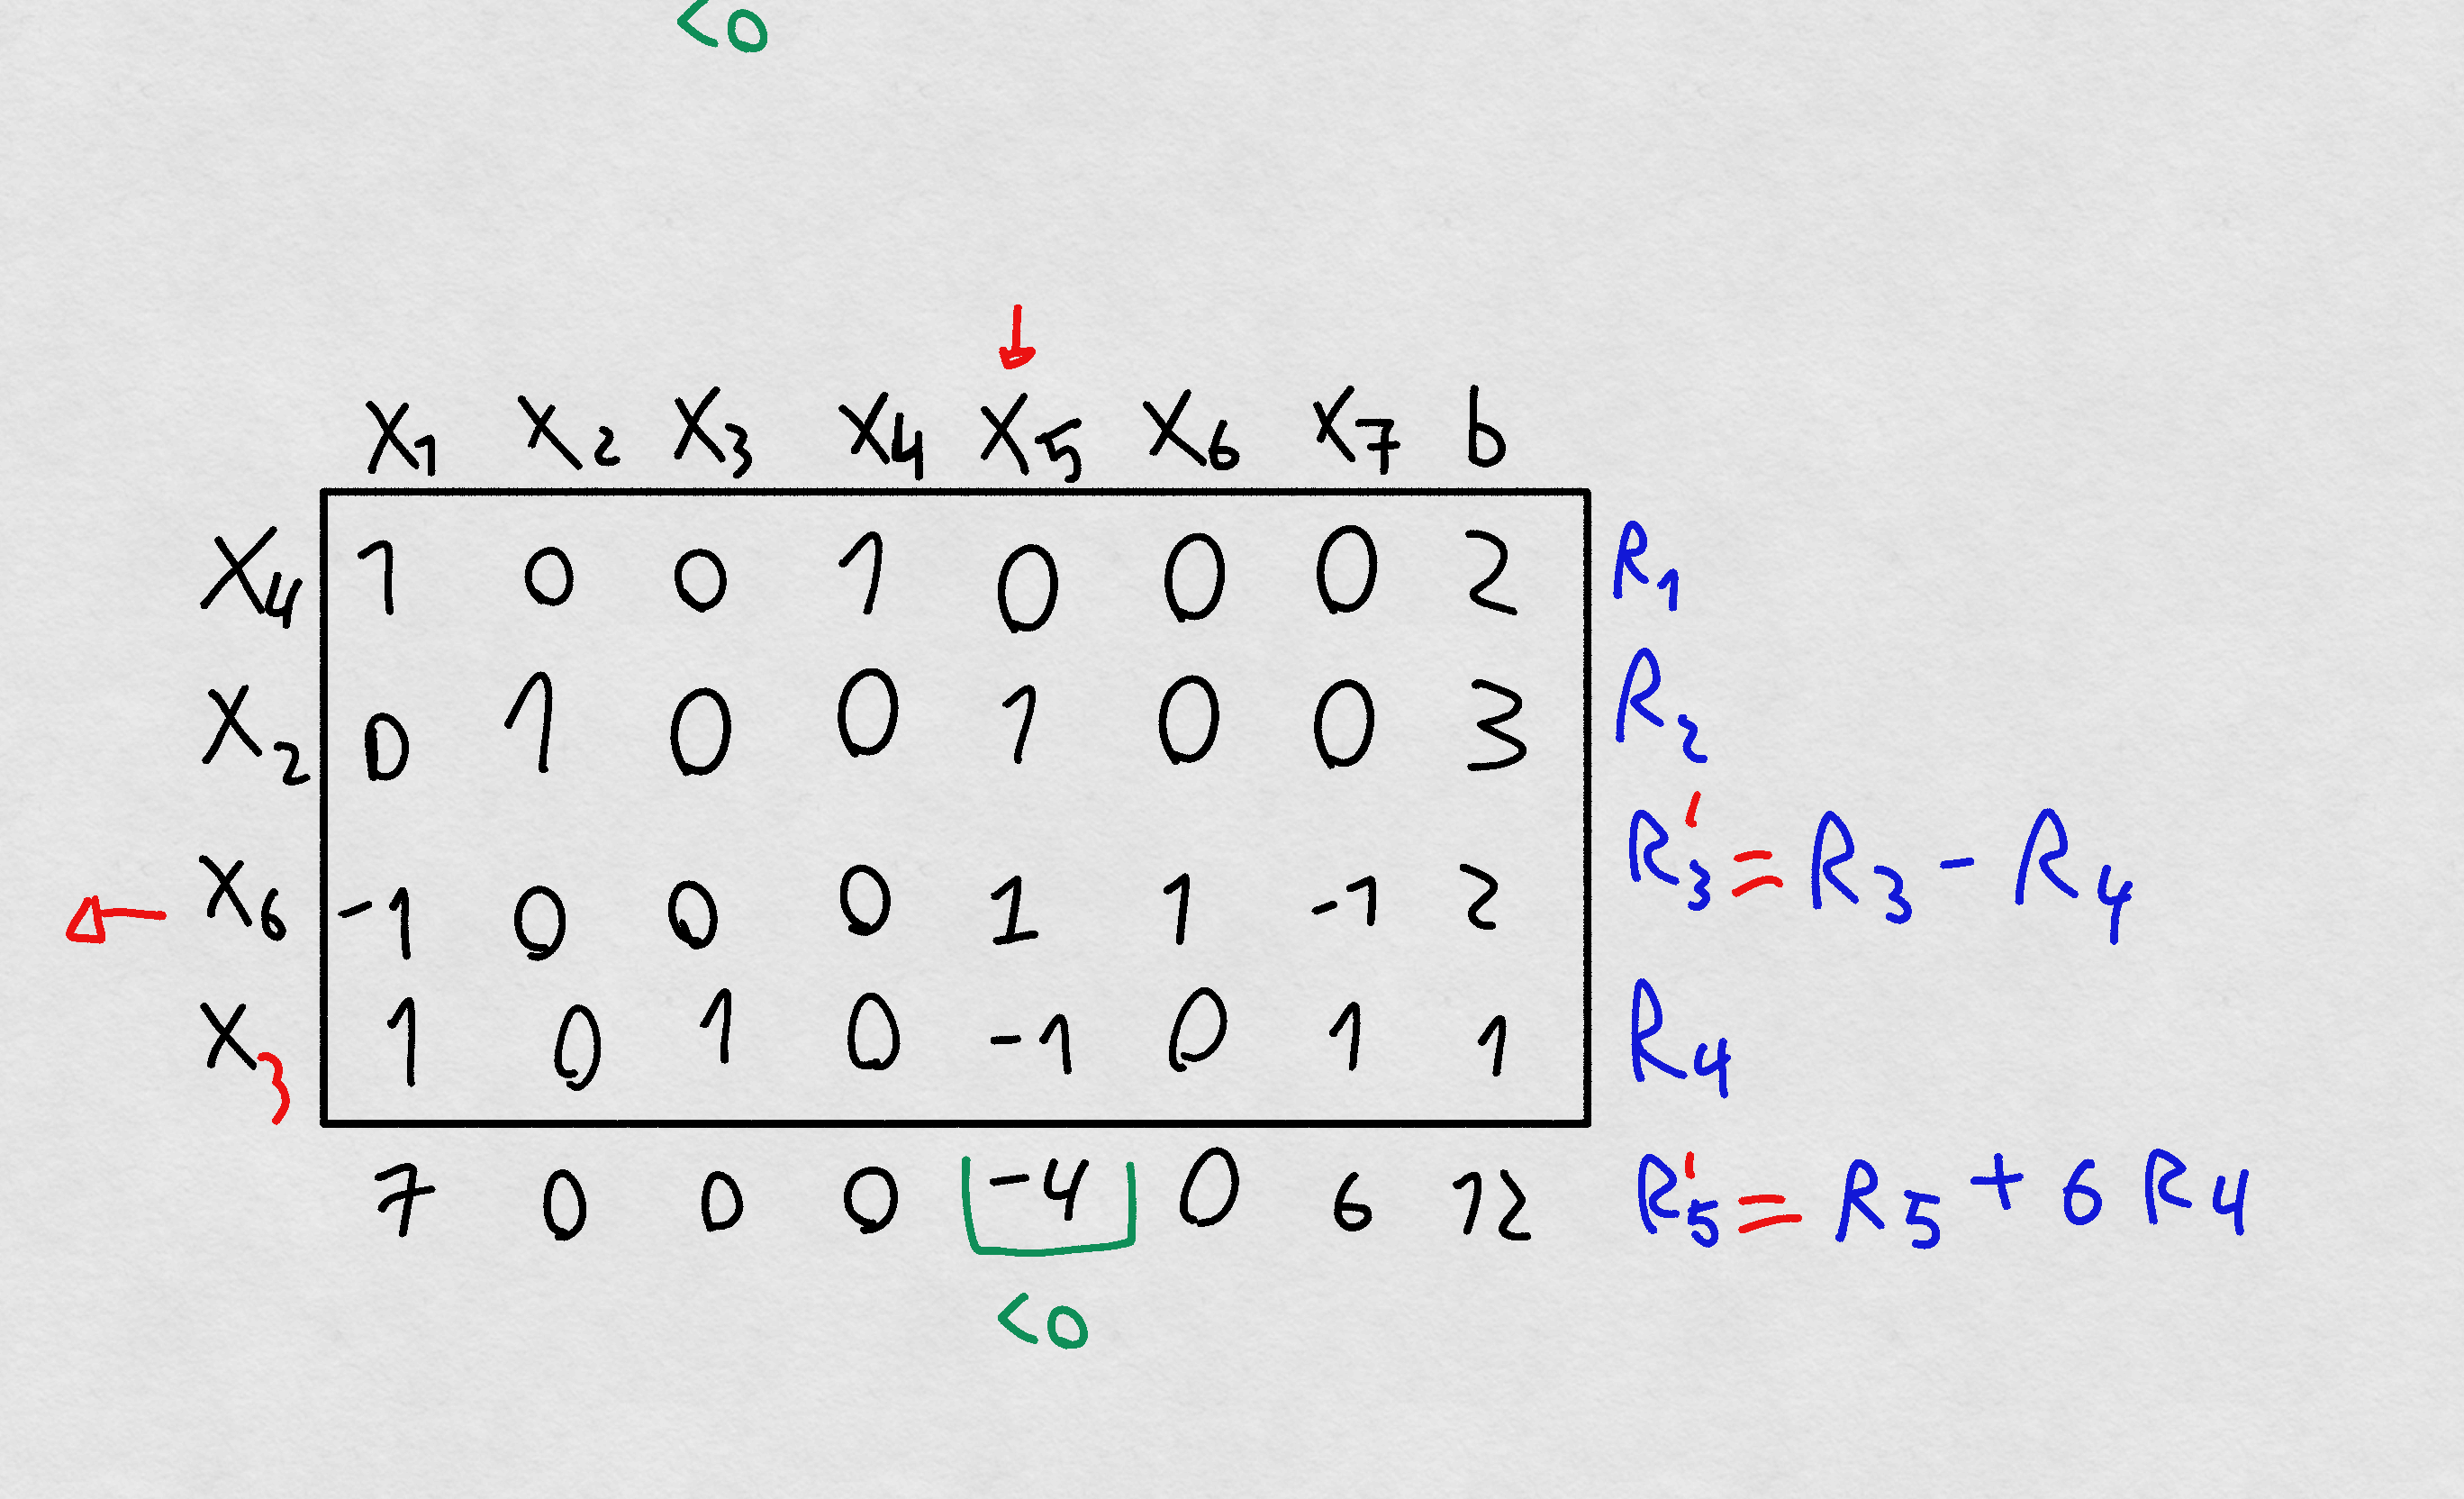 <0
X₁ X₂ X₃ X₄ X₅ X₆ X₇ b
X₄ 1 0 0 1 0 0 0 2 R₁
X₂ 0 1 0 0 1 0 0 3 R₂
X₆ -1 0 0 0 1 1 -1 2 R₃' = R₃ - R₄
X₃ 1 0 1 0 -1 0 1 1 R₄
7 0 0 0 -4 0 6 12 R₅' = R₅ + 6 R₄
<0